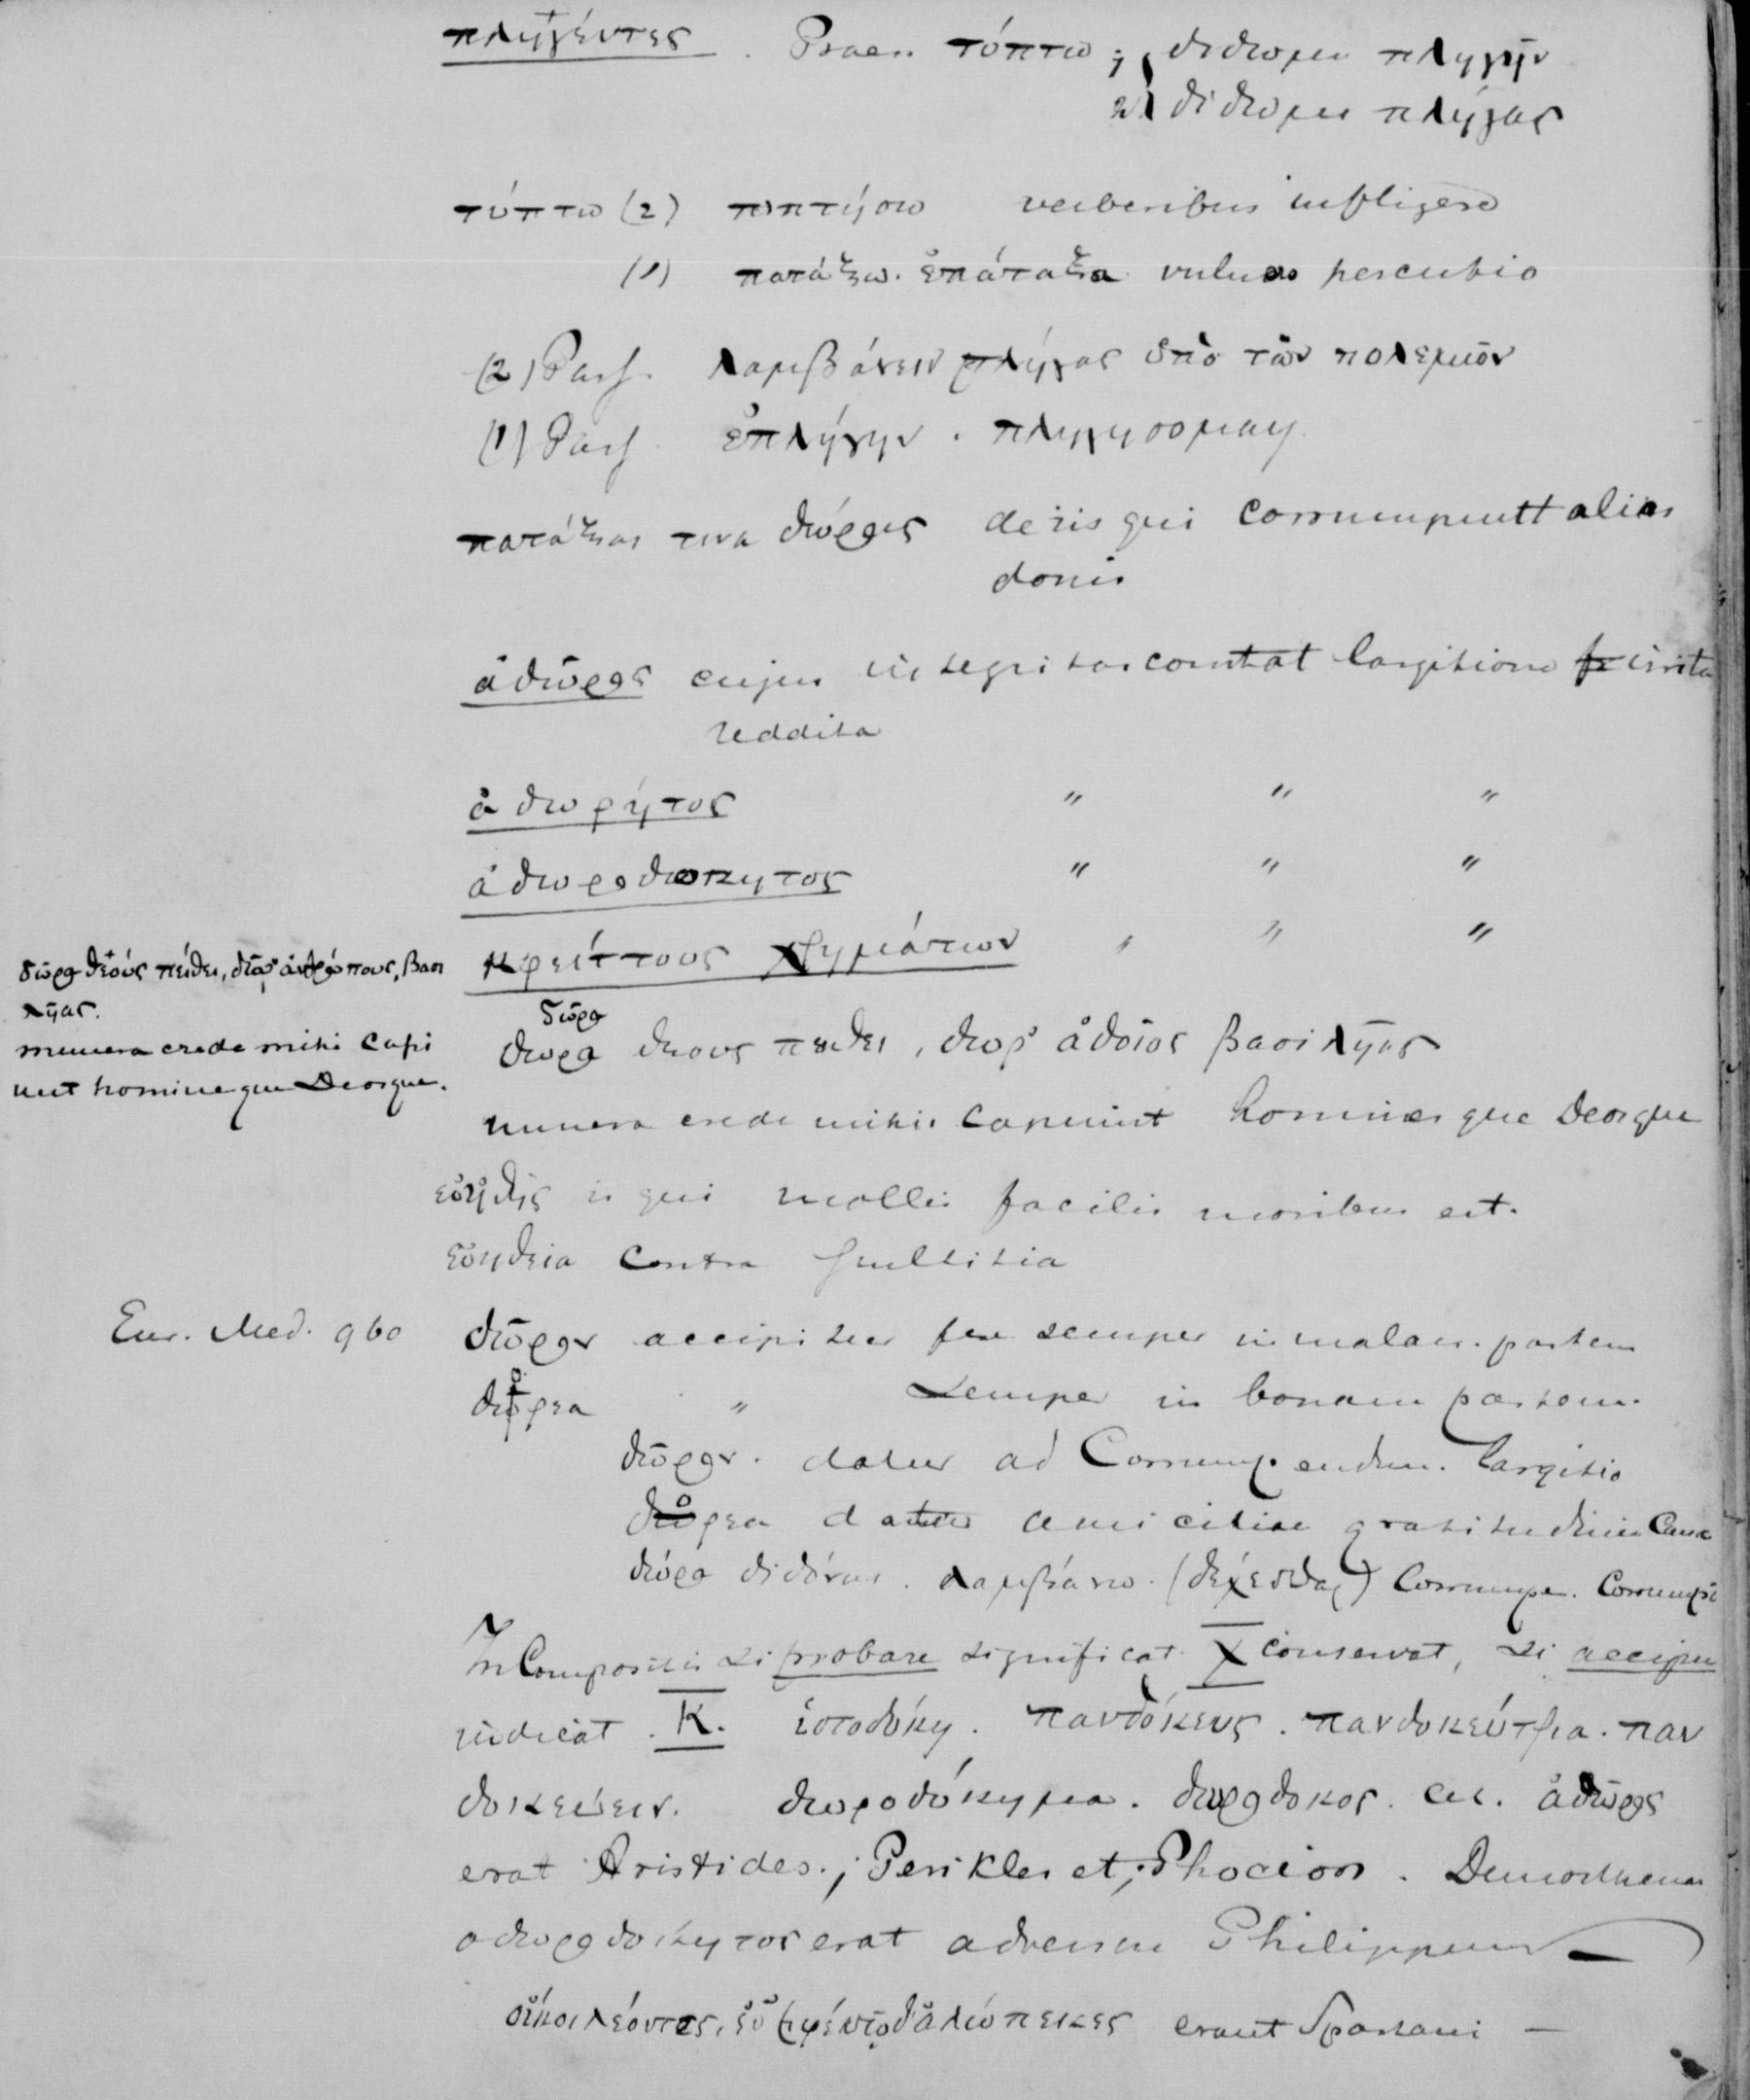 πληγέντες. Praes. τύπτω; 1) δίδωμι πληγήν
2) δίδωμι πλήγας
τύπτω (2) τυπτήσω verberibus infligere
(1) πατάξω. ἐπάταξα vulnus percutio
(2) Pass. λαμβάνειν πλήγας ὑπὸ τῶν πολεμίων
(1) Pass. ἐπλήγην. πληγησομαι
πατάξαι τινα δώροις de iis qui corrumpunt alios
donis
ἀδῶρος cujus integritas constat largitione irrita
reddita
ἀδωρήτος " " "
ἀδωροδοκητος " " "
κρείττους χρημάτων " " "
δῶρα θεούς πείθει, δῶρ' ἀνθρώπους, βασι
λῆας.
munera crede mihi capi
unt hominesque Deosque.
δῶρα
δωρα θεους πειθει, δωρ' ἀδοῖος βασιλῆας
munera crede mihi capiunt hominesque Deosque
εὐήθης is qui mollis facilis moribus est.
εὐηθεια contra stultitia
Eur. Med. 960 δῶρον accipitur fere semper in malam partem
δωρεα " semper in bonam partem.
δῶρον. datur ad corrumpendum. largitio
δωρεα datur amicitiae gratitudinis caus
δώρα διδόναι. λαμβάνω. (δέχεσθαι) Corrumpe. Corrumpi
In Compositis si probare significat χ conservat, si accipere
indicat. K. ἱστοδόκη. πανδόκευς. πανδοκεύτρια. παν
δοκεύειν. δωροδόκημα. δωροδοκος. etc. ἀδῶρος
erat Aristides; Perikles et; Phocion. Demosthenes
αδωροδοκητος erat adversus Philippum
οἴκοι λέοντες, ἐν Ἐφέσῳ δ' ἀλώπεκες erant Spartani —